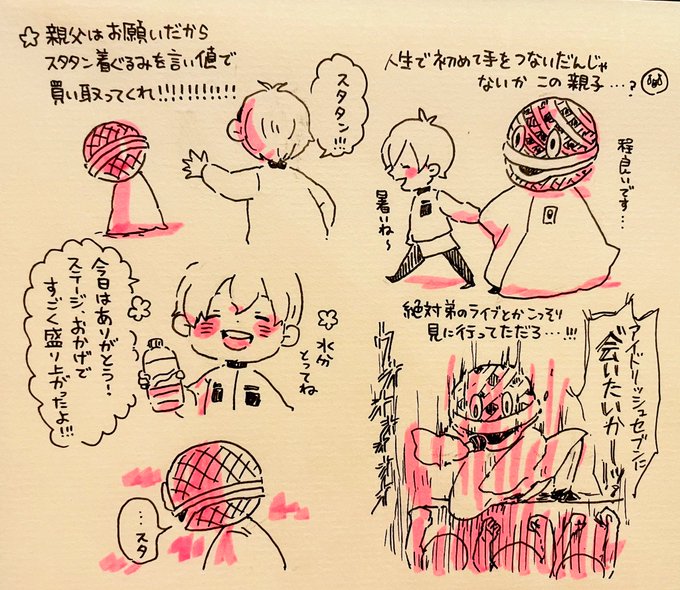 ☆親父はお願いだから
スタタン着ぐるみを言い値で
買い取ってくれ!!!!!!!!!
スタタン!!!
今日はありがとう!
ステージ、おかげで
すごく盛り上がったよ!!!
水分
とってね
…スタ
人生で初めて手をつないだんじゃ
ないか この親子…?
程良いです…
暑いね〜
絶対弟のライブとかこっそり
見に行ってただろ…!!!
アイドリッシュセブンに
会いたいかーッ